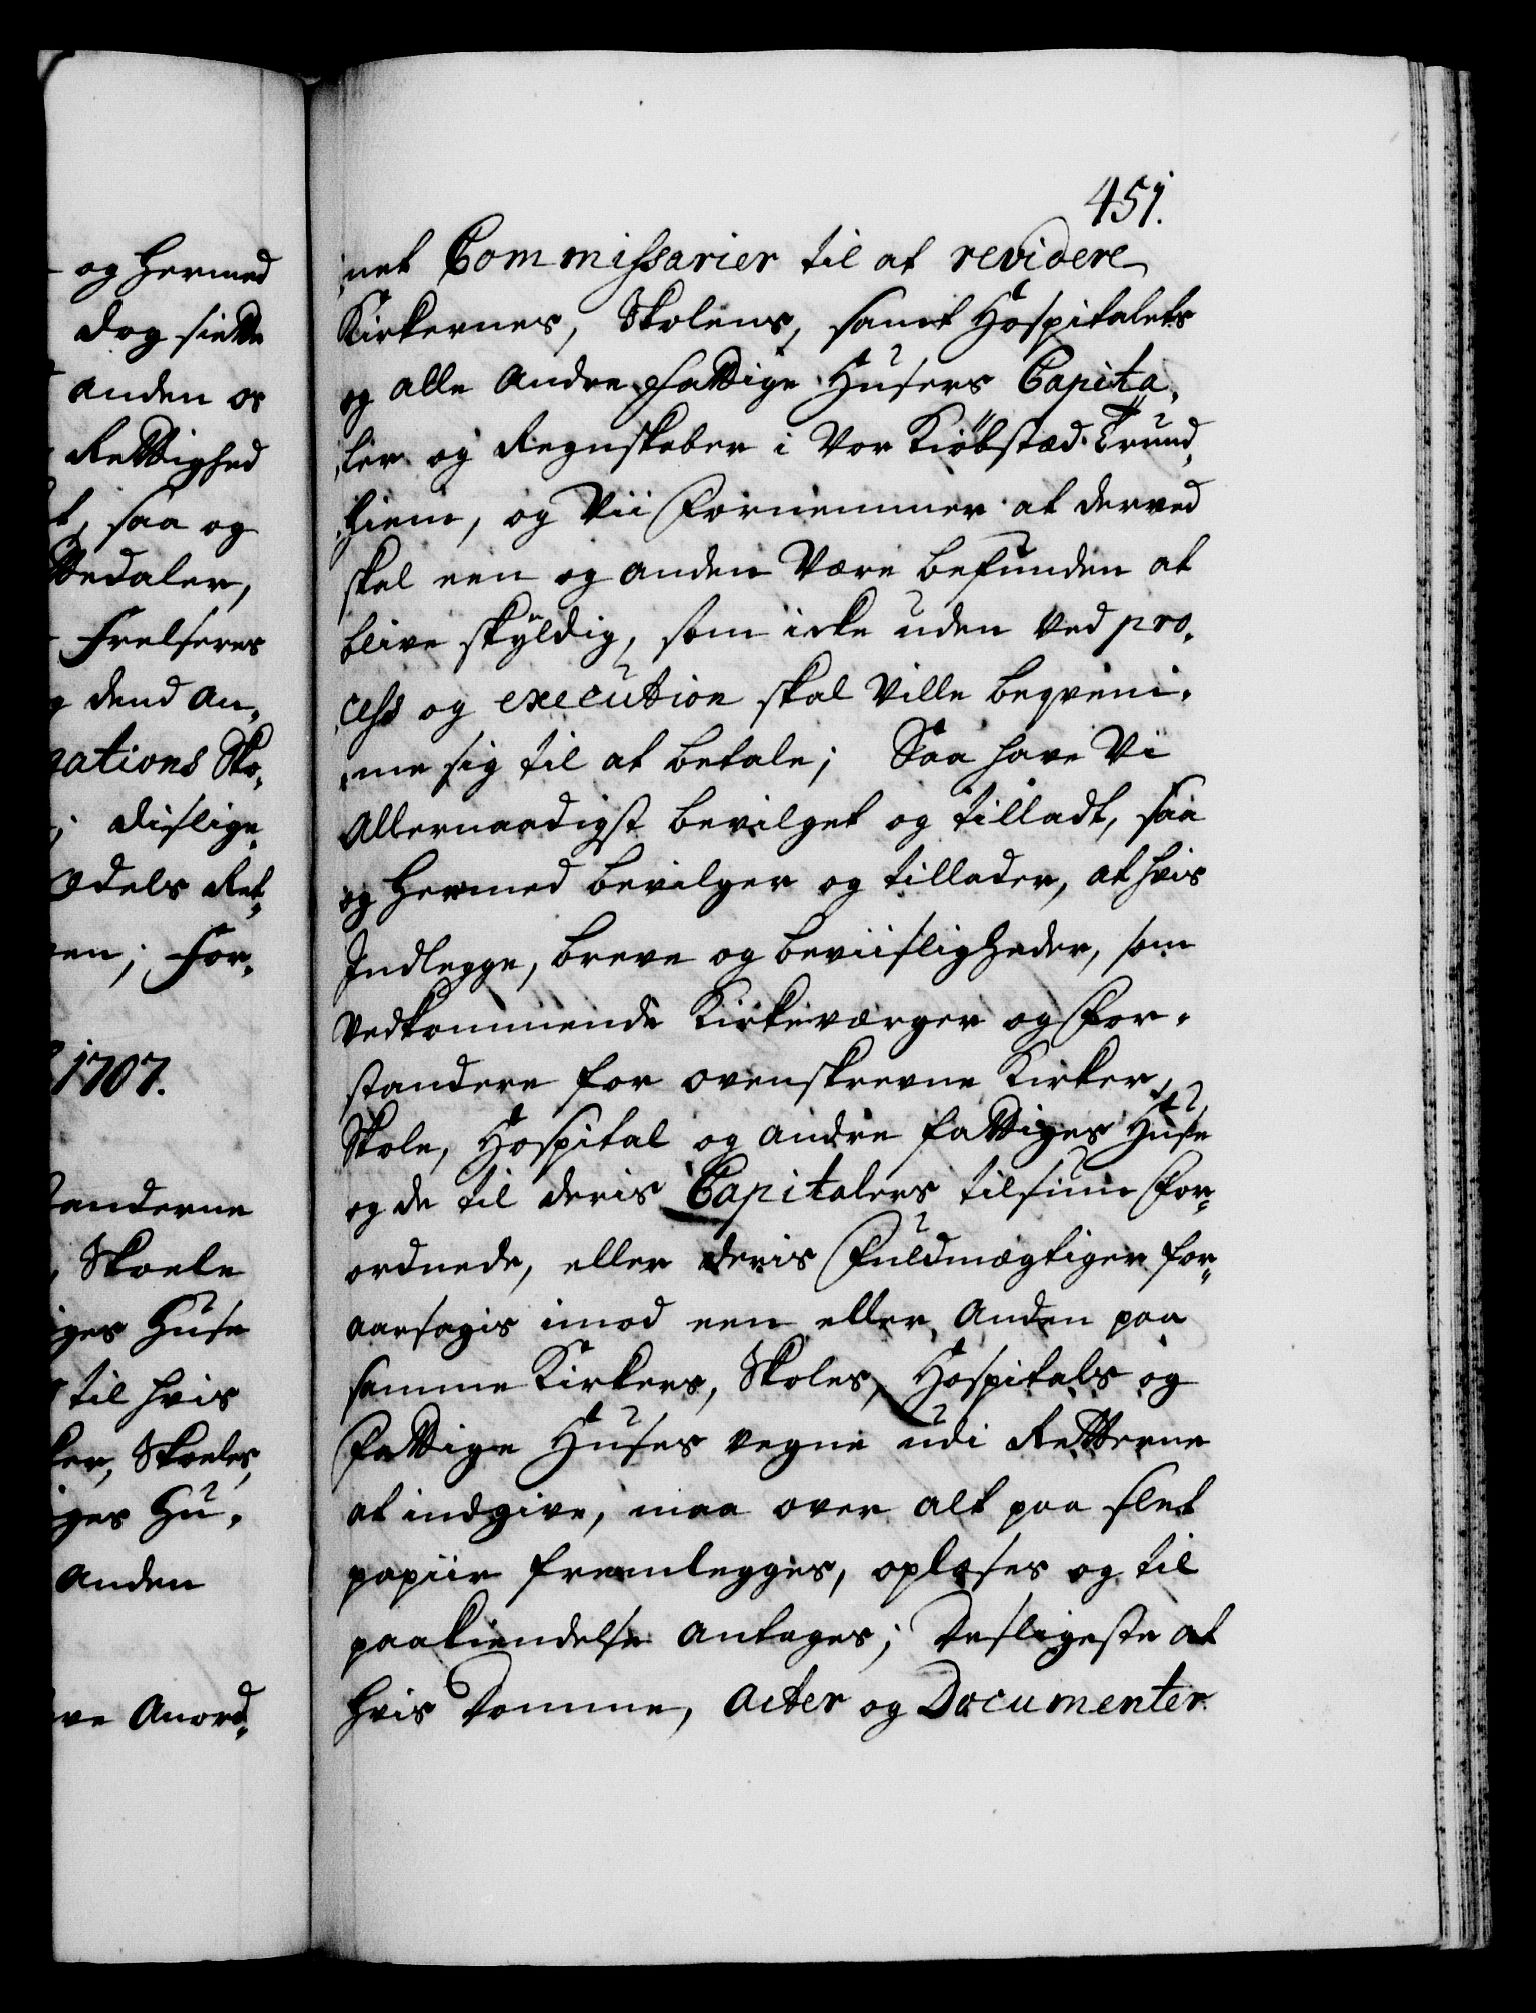 og hermed
dog siette
anden os
Rettighed
saa og
Frelseres
dend an-
nations Sko-
disligen
Odels Ret-
For-
1707.
Skoele
Huse
til hvis
Skoeles
Hu-
Anden
Anord-
451.
net Commissarier til at revidere
Kirkernes, Skolens, samt Hospitalets
og alle Andre fattige Husers Capita-
ler og Regnskaber i Vor Kiöbstæd Trund-
hiem, og Vii fornemmer at derved
skal een og anden Være befunden at
blive skyldig, som icke uden ved pro-
cess og execution skal Ville beqvem-
me sig til at betale; Saa have Vi
Allernaadigst bevilget og tilladt, saa
og hermed bevilger og tillader, at hvis
Indlegge, breve og beviisligheder, som
vedkommende Kirkeværger og for-
standere for ovenskrevne Kirker,
Skole, Hospital og andre fattiges Huse
og de til deris Capitalers tilsiun for-
ordnede, eller deris fuldmægtiger for-
aarsagis imod een eller Anden paa
samme Kirkers, Skoles, Hospitals og
fattige Huses vegne udi Retterne
at indgive, maa over alt paa slet
papiir fremlegges, oplæses og til
paakiendelse antages; Desligeste at
hvis Domme, Acter og Documenter